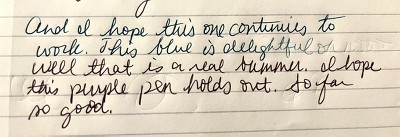 And I hope this one continues to
work. This blue is delightful oh
well that is a real bummer. I hope
this purple pen holds out. So far
so good.